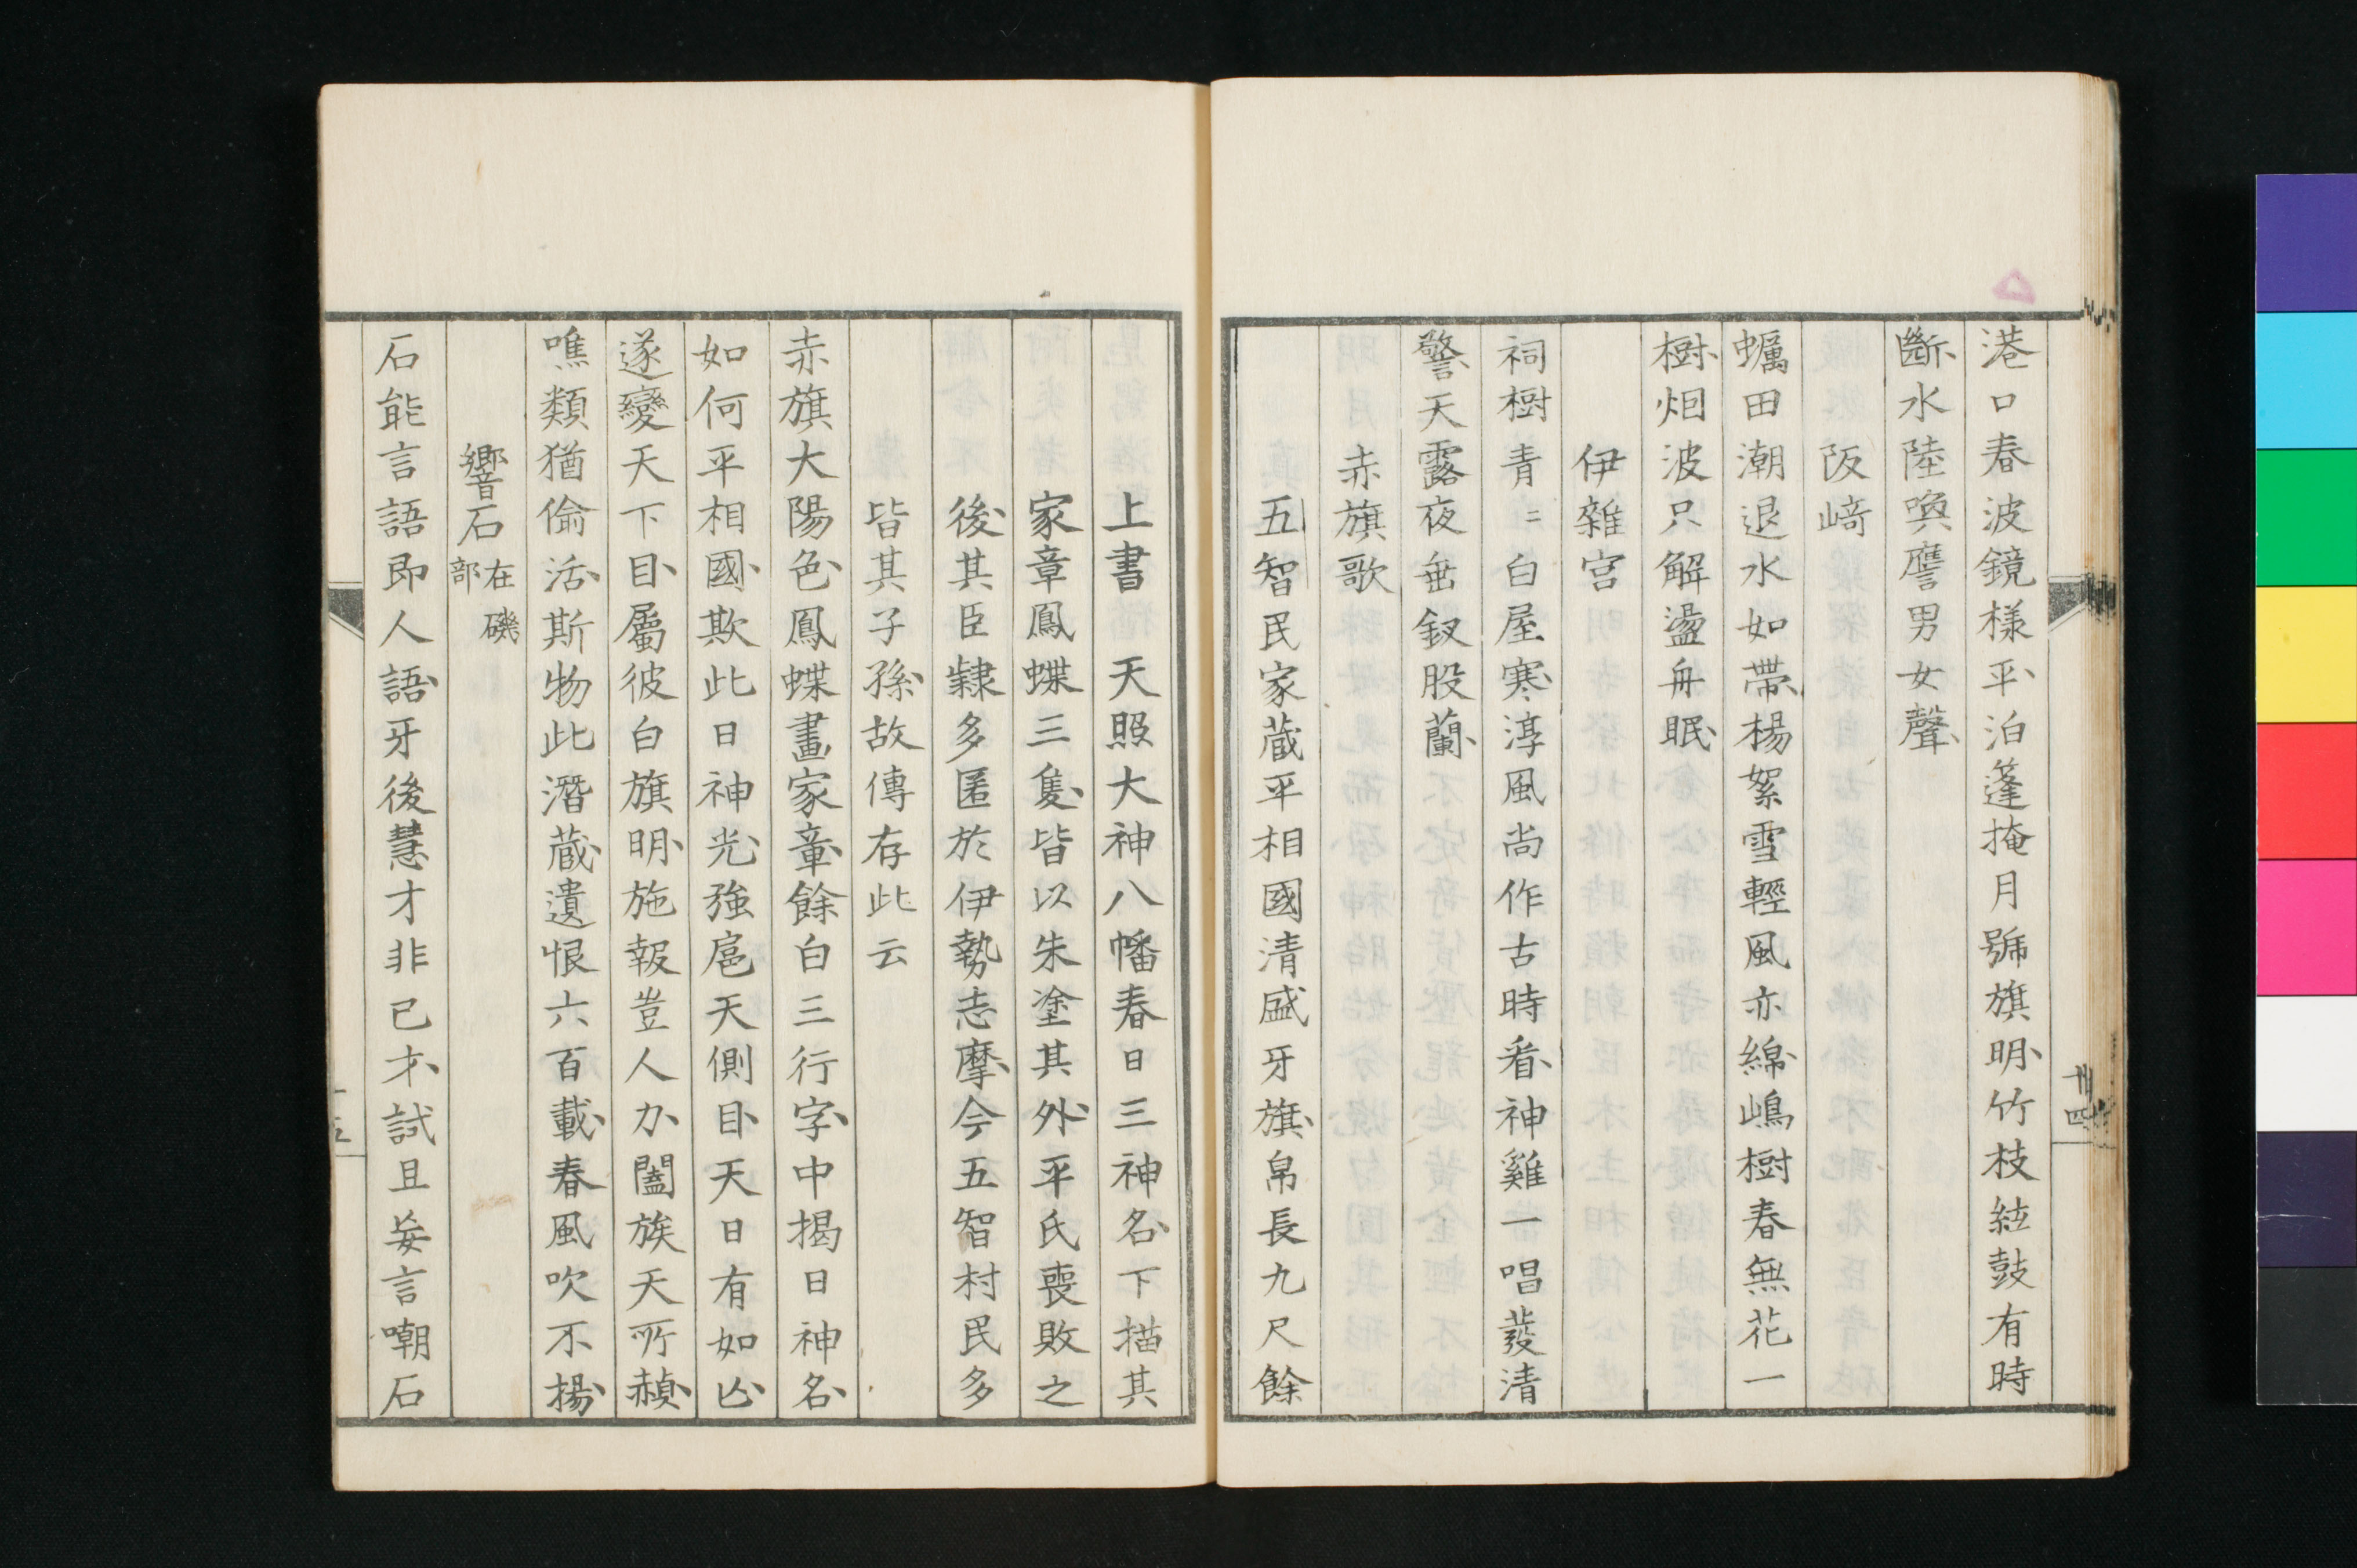 港口春波鏡樣平泊蓬掩月號旗明竹枝絃鼓有時
斷水陸喚譍男女聲
阪﨑
蠣田潮退水如帶楊絮雪輕風亦綿嶋樹春無花一
樹烟波只解盪舟眠
伊雜宮
祠樹青〻白屋寒淳風尚作古時看神雞一唱發清
警天露夜垂釵股蘭
赤旗歌
五智民家蔵平相國清盛牙旗帛長九尺餘
卅四
上書　天照大神八幡春日三神名下描其
家章鳳蝶三隻皆以朱塗其外平氏喪敗之
後其臣隸多匿於伊勢志摩今五智村民多
皆其子孫故傳存此云
赤旗大陽色鳳蝶畫家章餘白三行字中揭日神名
如何平相國欺此日神光強扈天側目天日有如此
遂變天下目屬彼白旗明施報豈人力闔族天所赬
噍類猶偷活斯物此潛蔵遺恨六百載春風吹不揚
響石在磯部
石能言語即人語牙後慧才非已才試且妄言嘲石